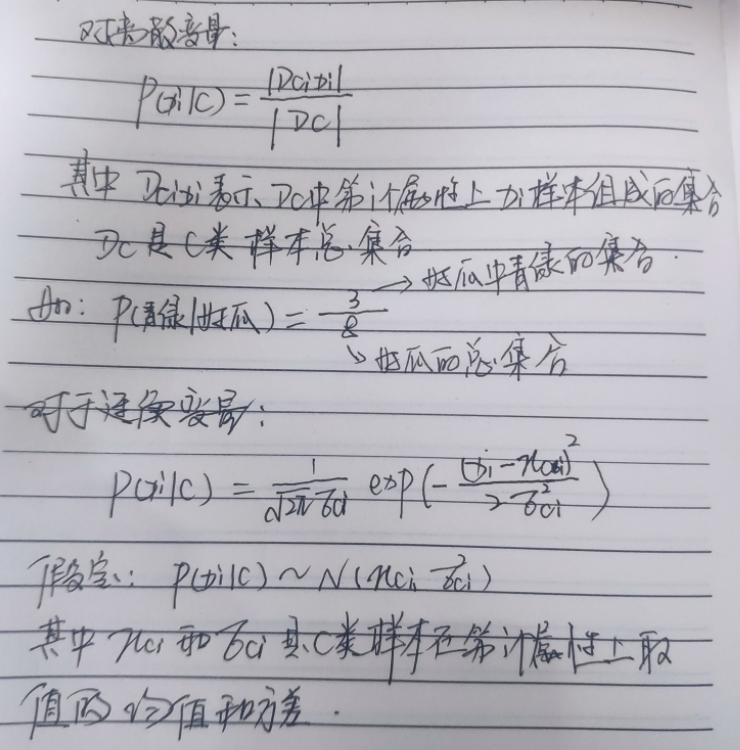 对离散变量:
P(xi|C) = |Dcixi| / |DC|
其中 Dcixi表示Dc中第i个属性上xi样本组成的集合
Dc是C类样本总集合
→好瓜中青绿的集合.
如: P(青绿|好瓜) = 3/8
↘好瓜的总集合
对于连续变量:
P(xi|C) = 1/(√2π σci) exp(-(xi-μci)²/2σ²ci)
假定: P(xi|C) ~ N(μci σ²ci)
其中 μci 和 σci 是C类样本在第i个属性上取
值的均值和方差.